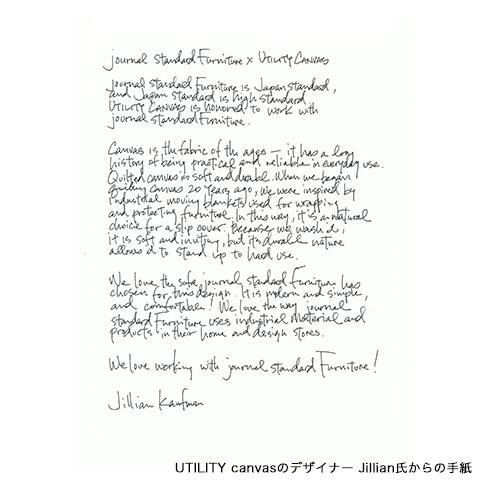 journal standard Furniture x UTILITY CANVAS
journal standard Furniture is Japan standard,
and Japan standard is high standard
UTILITY CANVAS is honored to work with
journal standard Furniture.
Canvas is the fabric of the ages — it has a long
history of being practical and reliable in everyday use.
Quilted canvas is soft and durable. When we began
quilting canvas 20 years ago, we were inspired by
industrial moving blankets used for wrapping
and protecting furniture. In this way, it's a natural
choice for a slip cover. Because we wash it,
it is soft and inviting, but its durable nature
allows it to stand up to hard use.
We love the sofa journal standard Furniture has
chosen for this design. It is modern and simple,
and comfortable! We love the way journal
standard Furniture uses industrial material and
products in their home and design stores.
We love working with journal standard Furniture!
Jillian Kaufman
UTILITY canvasのデザイナー Jillian氏からの手紙